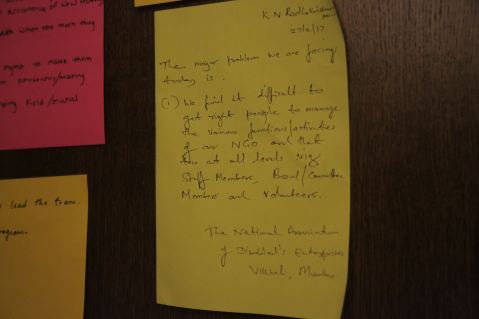 acceptance of new
with when too much they
mgmt to make them
field/rural
lead the team.
K. N. Radhakrishnan
27/2/17
The major problem we are facing
today is :
(1) We find it difficult to
get right people to manage
the various functions/activities
of our NGO and that
too at all levels viz
Staff Members, Board/Committee
Members and Volunteers.
The National Association
of Disabled's Enterprises
Mumbai